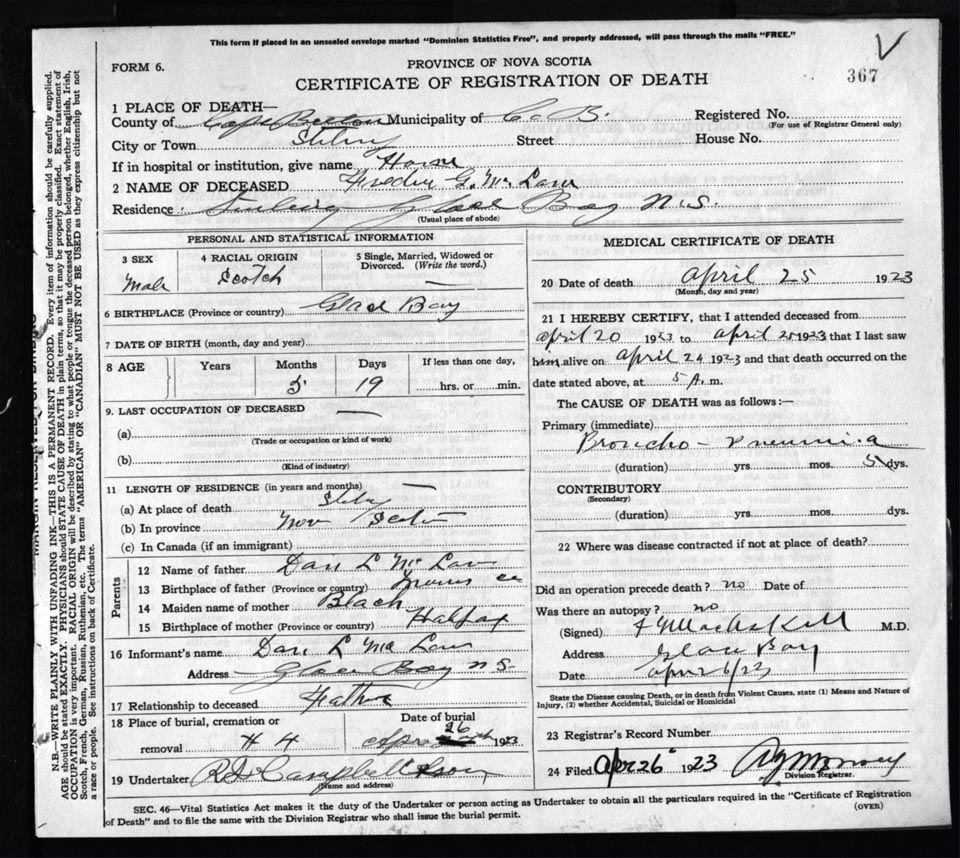 This form if placed in an unsealed envelope marked "Dominion Statistics Free", and properly addressed, will pass through the mails "FREE."
FORM 6.
PROVINCE OF NOVA SCOTIA
367
CERTIFICATE OF REGISTRATION OF DEATH
1 PLACE OF DEATH—
County of Cape Breton Municipality of C. B. Registered No.
(For use of Registrar General only)
City or Town Street House No.
If in hospital or institution, give name Home
2 NAME OF DECEASED G. Mc
Residence Glace Bay N.S.
(Usual place of abode)
PERSONAL AND STATISTICAL INFORMATION
3 SEX 4 RACIAL ORIGIN 5 Single, Married, Widowed or Divorced. (Write the word.)
Male Scotch —
6 BIRTHPLACE (Province or country) Glace Bay
7 DATE OF BIRTH (month, day and year)
8 AGE Years Months Days If less than one day,
5 19 hrs. or min.
9. LAST OCCUPATION OF DECEASED —
(a)
(Trade or occupation or kind of work)
(b)
(Kind of industry)
11 LENGTH OF RESIDENCE (in years and months) —
(a) At place of death
(b) In province Nova Scotia
(c) In Canada (if an immigrant)
Parents
12 Name of father Dan L Mc
13 Birthplace of father (Province or country)
14 Maiden name of mother Black
15 Birthplace of mother (Province or country) Halifax
16 Informant's name Dan L Mc
Address Glace Bay N S.
17 Relationship to deceased Father
18 Place of burial, cremation or Date of burial
removal # 4 26 1923
19 Undertaker Campbell & Sons
(Name and address)
MEDICAL CERTIFICATE OF DEATH
20 Date of death April 25 1923
(Month, day and year)
21 I HEREBY CERTIFY, that I attended deceased from
April 20 1923 to April 1923 that I last saw
him alive on April 24 1923 and that death occurred on the
date stated above, at 5 A. m.
The CAUSE OF DEATH was as follows:—
Primary (immediate)
Broncho-Pneumonia
(duration) yrs. mos. 5 dys.
CONTRIBUTORY
(Secondary)
(duration) yrs. mos. dys.
22 Where was disease contracted if not at place of death?
Did an operation precede death? no Date of
Was there an autopsy? no
(Signed) M.D.
Address Glace Bay
Date
State the Disease causing Death, or in death from Violent Causes, state (1) Means and Nature of
Injury, (2) whether Accidental, Suicidal or Homicidal
23 Registrar's Record Number
24 Filed Apr 26 1923
Division Registrar.
SEC. 46—Vital Statistics Act makes it the duty of the Undertaker or person acting as Undertaker to obtain all the particulars required in the "Certificate of Registration
of Death" and to file the same with the Division Registrar who shall issue the burial permit.
(OVER)
N.B.—WRITE PLAINLY WITH UNFADING INK—THIS IS A PERMANENT RECORD. Every item of information should be carefully supplied.
AGE should be stated EXACTLY. PHYSICIANS should STATE CAUSE OF DEATH in plain terms, so that it may be properly classified. Exact statement of
OCCUPATION is very important. RACIAL ORIGIN will be described by stating to what people or tongue the deceased person belonged, whether English, Irish,
Scotch, French, German, Russian, Ruthenian, etc. The terms "AMERICAN" OR "CANADIAN" MUST NOT BE USED as they express citizenship but not
a race or people. See instructions on back of Certificate.